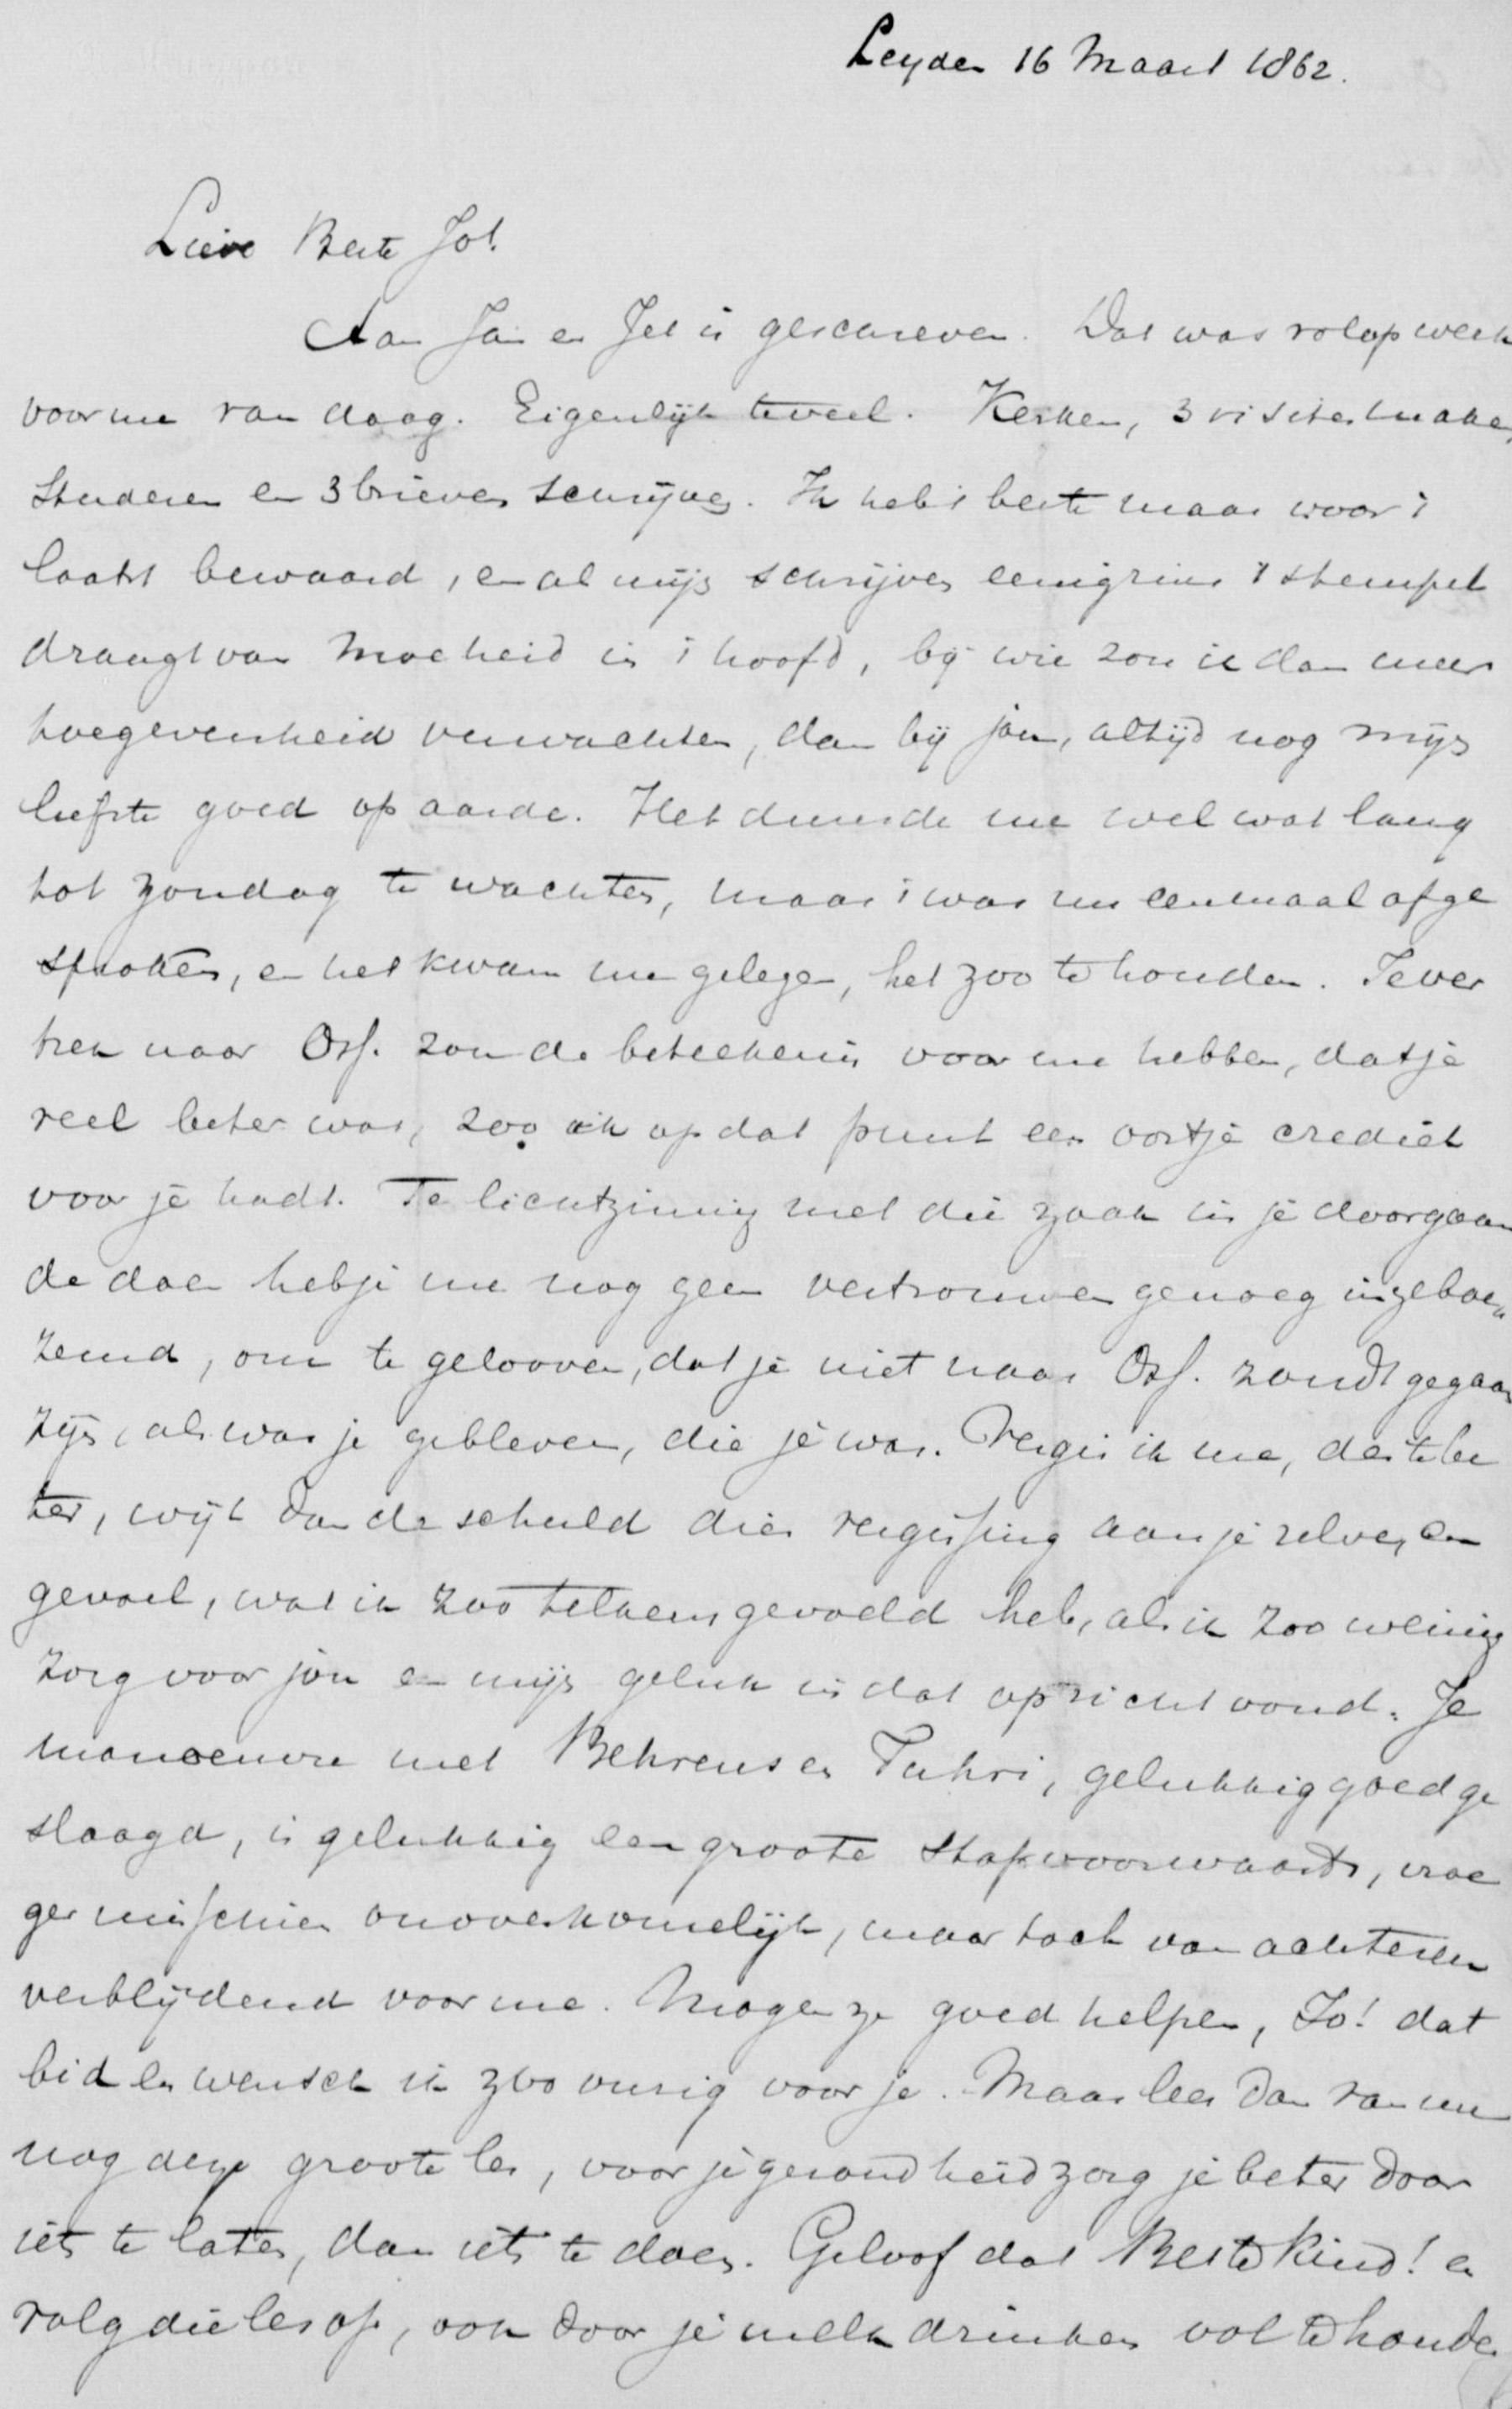 Leyden 16 Maart 1862.
Lieve Beste Jo!
Aan Jan en Jet is geschreven. Dat was volop werk
voor me van daag. Eigenlijk te veel. Kerken, 3 visites maken,
studeren en 3 brieven schrijven. Ik heb 't beste maar voor 't
laatst bewaard, en al mijn schrijven eenigzins 't stempel
draagt van moeheid in 't hoofd, bij wie zou ik dan meer
toegevenheid verwachten, dan bij jou, altijd nog mijn
liefste goed op aarde. Het duurde me wel wat lang
tot Zondag te wachten, maar 't was nu eenmaal afge
sproken, en het kwam me gelegen, het zoo te houden. Je ver
trek naar Osf. zou de beteekenis voor me hebben, dat je
veel beter was, zoo ik op dat punt een oortje crediet
voor je hadt. Te lichtzinnig met die zaak in je doorgaan
de doen heb je me nog geen vertrouwen genoeg ingeboe
zemd, om te gelooven, dat je niet naar Osf. zoudt gegaan
zijn, al was je gebleven, die je was. Vergis ik me, des te be
ter, wijt dan de schuld dier vergissing aan je zelve, en
gevoel, wat ik zoo telkens gevoeld heb, als ik zoo weinig
zorg voor jou en mijn geluk in dat opzicht vond. Je
manoeuvre met Behrens en Tuhri, gelukkig goed ge
slaagd, is gelukkig een groote stap voorwaarts, vroe
ger misschien onoverkomelijk, maar toch van achteren
verblijdend voor me. Mogen ze goed helpen, Jo! dat
bid en wensch ik zoo vurig voor je. Maar leer dan van me
nog deze groote les, voor je gezondheid zorg je beter door
iets te laten, dan iets te doen. Geloof dat Beste kind! en
volg die les op, ook door je melk drinken vol te houden